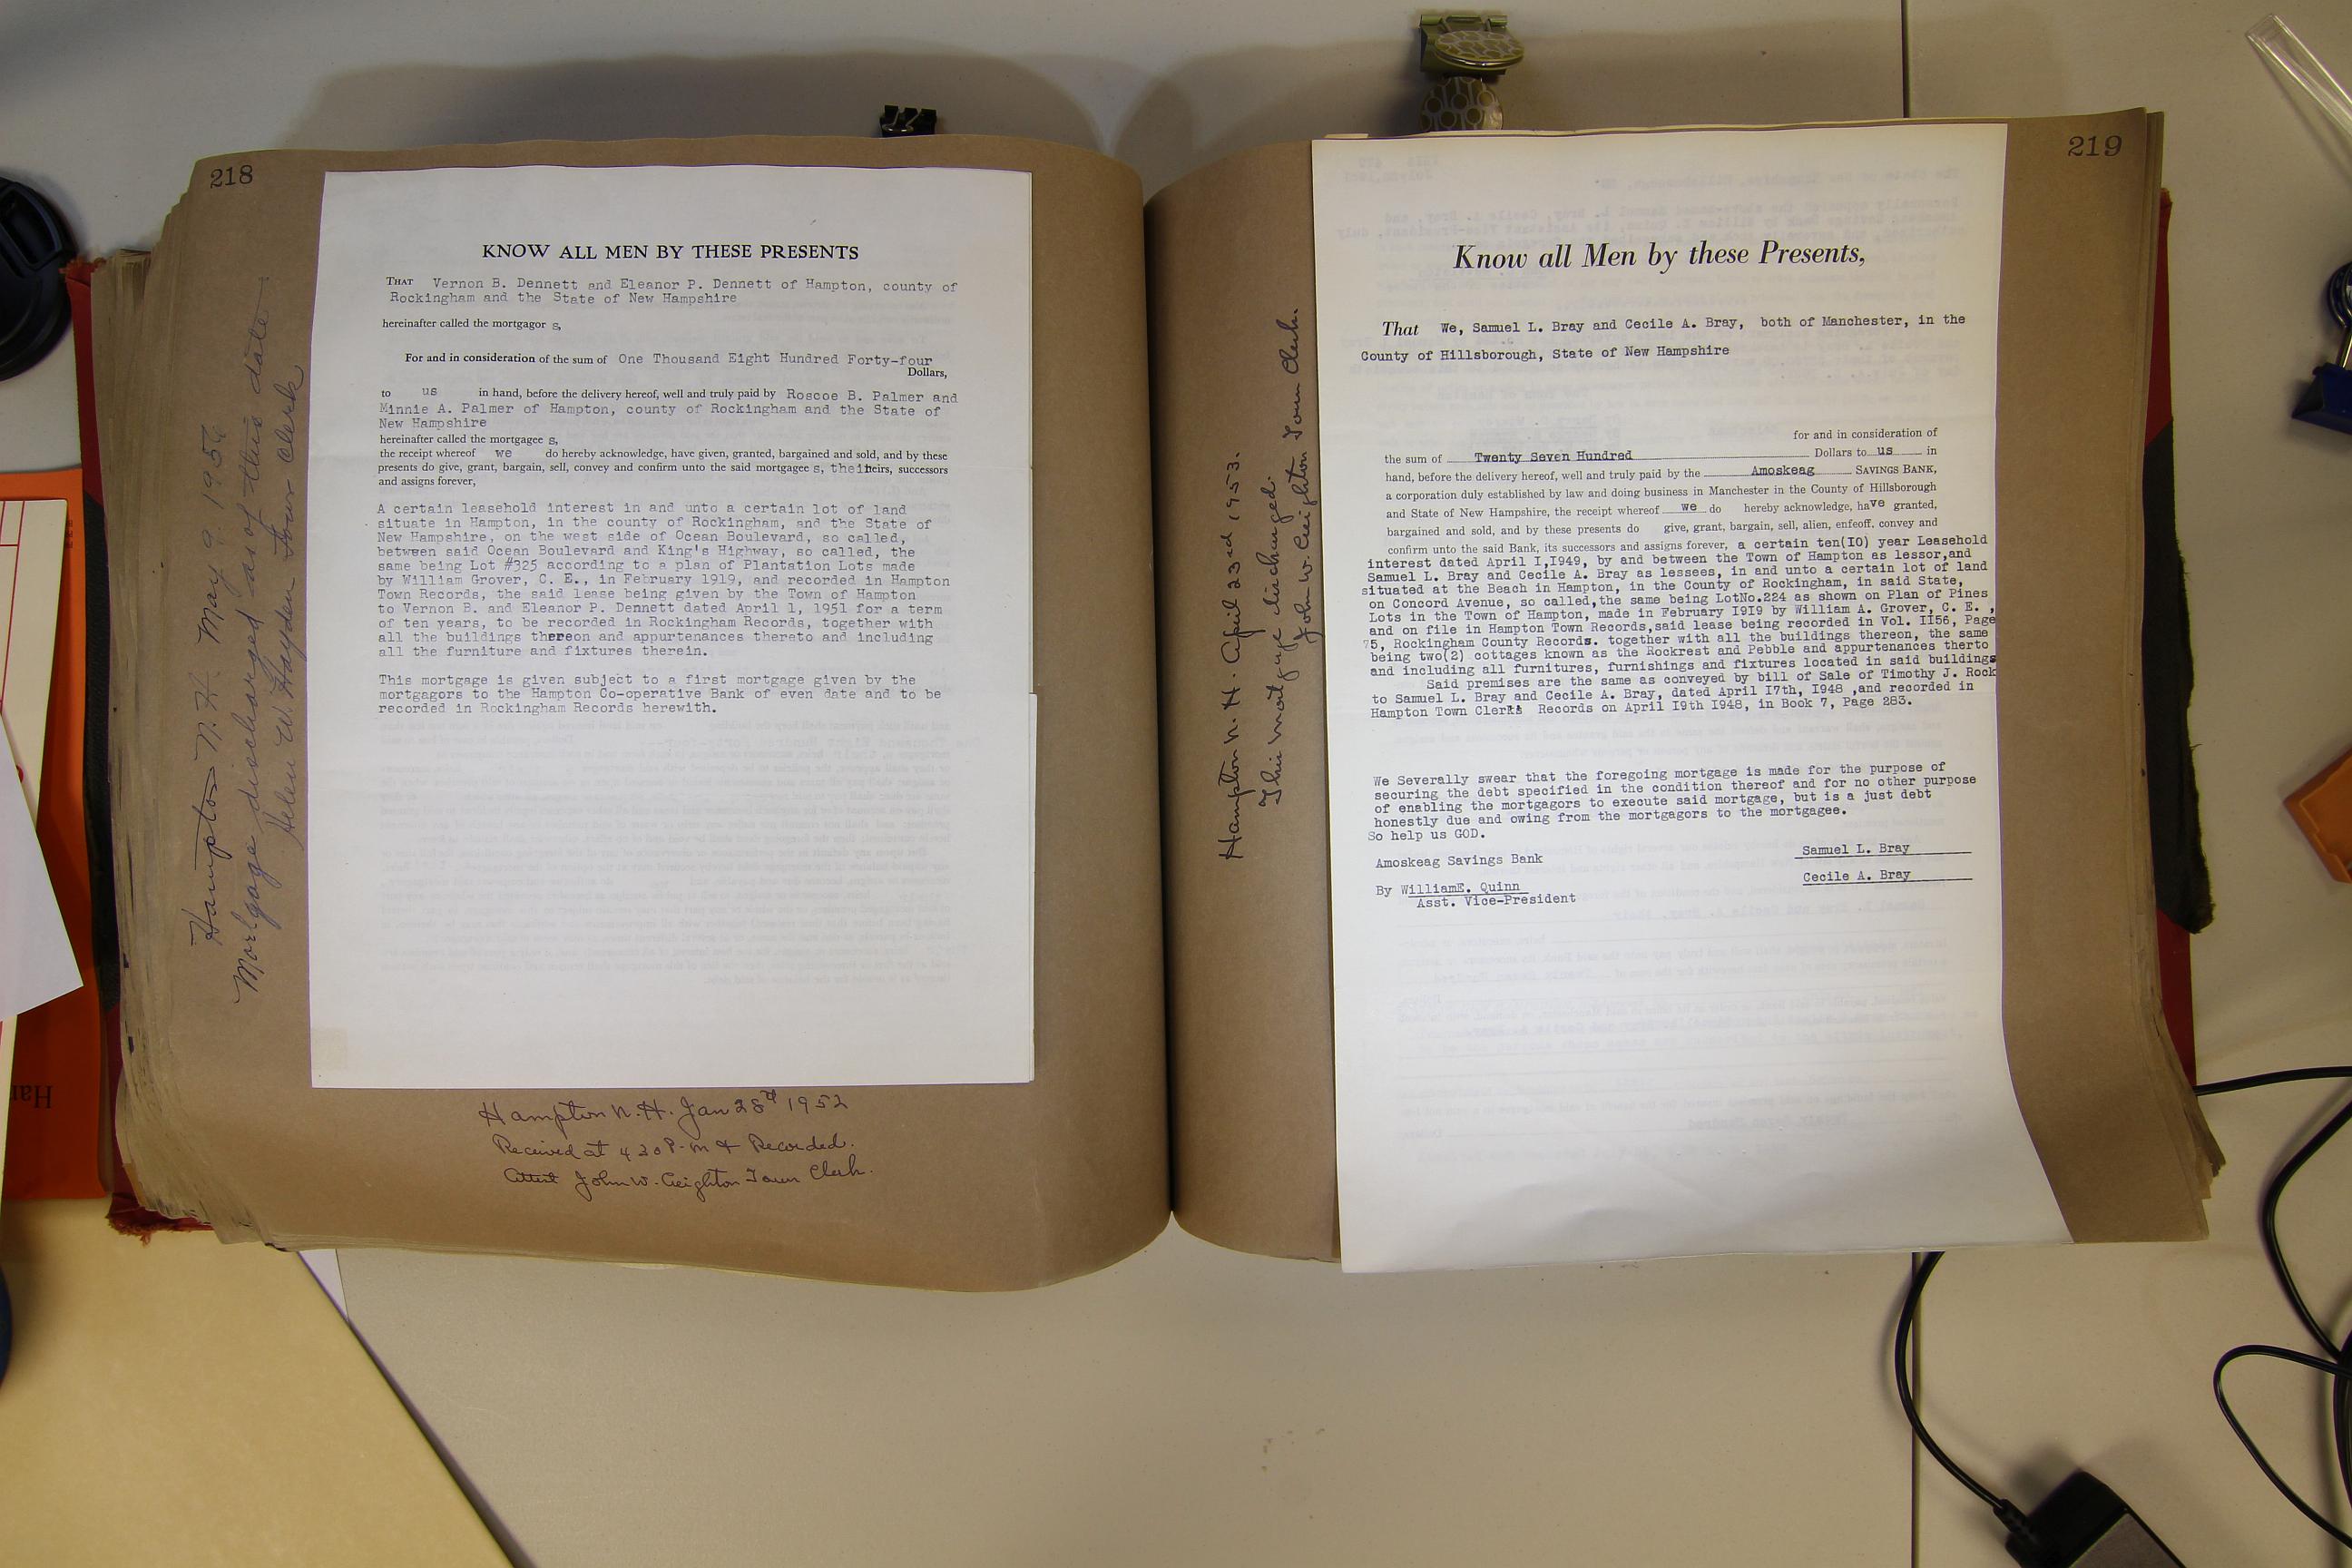 218
KNOW ALL MEN BY THESE PRESENTS
THAT Vernon B. Dennett and Eleanor P. Dennett of Hampton, county of
Rockingham and the State of New Hampshire
hereinafter called the mortgagor s,
For and in consideration of the sum of One Thousand Eight Hundred Forty-four
Dollars,
to us in hand, before the delivery hereof, well and truly paid by Roscoe B. Palmer and
Minnie A. Palmer of Hampton, county of Rockingham and the State of
New Hampshire
hereinafter called the mortgagee s,
the receipt whereof we do hereby acknowledge, have given, granted, bargained and sold, and by these
presents do give, grant, bargain, sell, convey and confirm unto the said mortgagee s, theiheirs, successors
and assigns forever,
A certain leasehold interest in and unto a certain lot of land
situate in Hampton, in the county of Rockingham, and the State of
New Hampshire, on the west side of Ocean Boulevard, so called,
between said Ocean Boulevard and King's Highway, so called, the
same being Lot #325 according to a plan of Plantation Lots made
by William Grover, C. E., in February 1919, and recorded in Hampton
Town Records, the said lease being given by the Town of Hampton
to Vernon B. and Eleanor P. Dennett dated April 1, 1951 for a term
of ten years, to be recorded in Rockingham Records, together with
all the buildings thereon and appurtenances thereto and including
all the furniture and fixtures therein.
This mortgage is given subject to a first mortgage given by the
mortgagors to the Hampton Co-operative Bank of even date and to be
recorded in Rockingham Records herewith.
Hampton N.H. Jan 28th 1952
Received at 4 20 P.M & Recorded.
Attest John W. Creighton Town Clerk.
Hampton N.H. May 9, 1956
Mortgage discharged as of this date.
Helen W. Hayden Town Clerk
219
Hampton N. H. April 23rd 1953.
This mortgage discharged.
John W. Creighton Town Clerk.
Know all Men by these Presents,
That We, Samuel L. Bray and Cecile A. Bray, both of Manchester, in the
County of Hillsborough, State of New Hampshire
for and in consideration of
the sum of Twenty Seven Hundred Dollars to us in
hand, before the delivery hereof, well and truly paid by the Amoskeag SAVINGS BANK,
a corporation duly established by law and doing business in Manchester in the County of Hillsborough
and State of New Hampshire, the receipt whereof we do hereby acknowledge, have granted,
bargained and sold, and by these presents do give, grant, bargain, sell, alien, enfeoff, convey and
confirm unto the said Bank, its successors and assigns forever, a certain ten(IO) year Leasehold
interest dated April I,I949, by and between the Town of Hampton as lessor,and
Samuel L. Bray and Cecile A. Bray as lessees, in and unto a certain lot of land
situated at the Beach in Hampton, in the County of Rockingham, in said State,
on Concord Avenue, so called,the same being LotNo.224 as shown on Plan of Pines
Lots in the Town of Hampton, made in February I9I9 by William A. Grover, C. E. ,
and on file in Hampton Town Records,said lease being recorded in Vol. II56, Page
75, Rockingham County Records. together with all the buildings thereon, the same
being two(2) cottages known as the Rockrest and Pebble and appurtenances therto
and including all furnitures, furnishings and fixtures located in said buildings
Said premises are the same as conveyed by bill of Sale of Timothy J. Rock
to Samuel L. Bray and Cecile A. Bray, dated April I7th, I948 ,and recorded in
Hampton Town Clerks Records on April I9th I948, in Book 7, Page 283.
We Severally swear that the foregoing mortgage is made for the purpose of
securing the debt specified in the condition thereof and for no other purpose
of enabling the mortgagors to execute said mortgage, but is a just debt
honestly due and owing from the mortgagors to the mortgagee.
So help us GOD.
Amoskeag Savings Bank
Samuel L. Bray
Cecile A. Bray
By WilliamE. Quinn
Asst. Vice-President